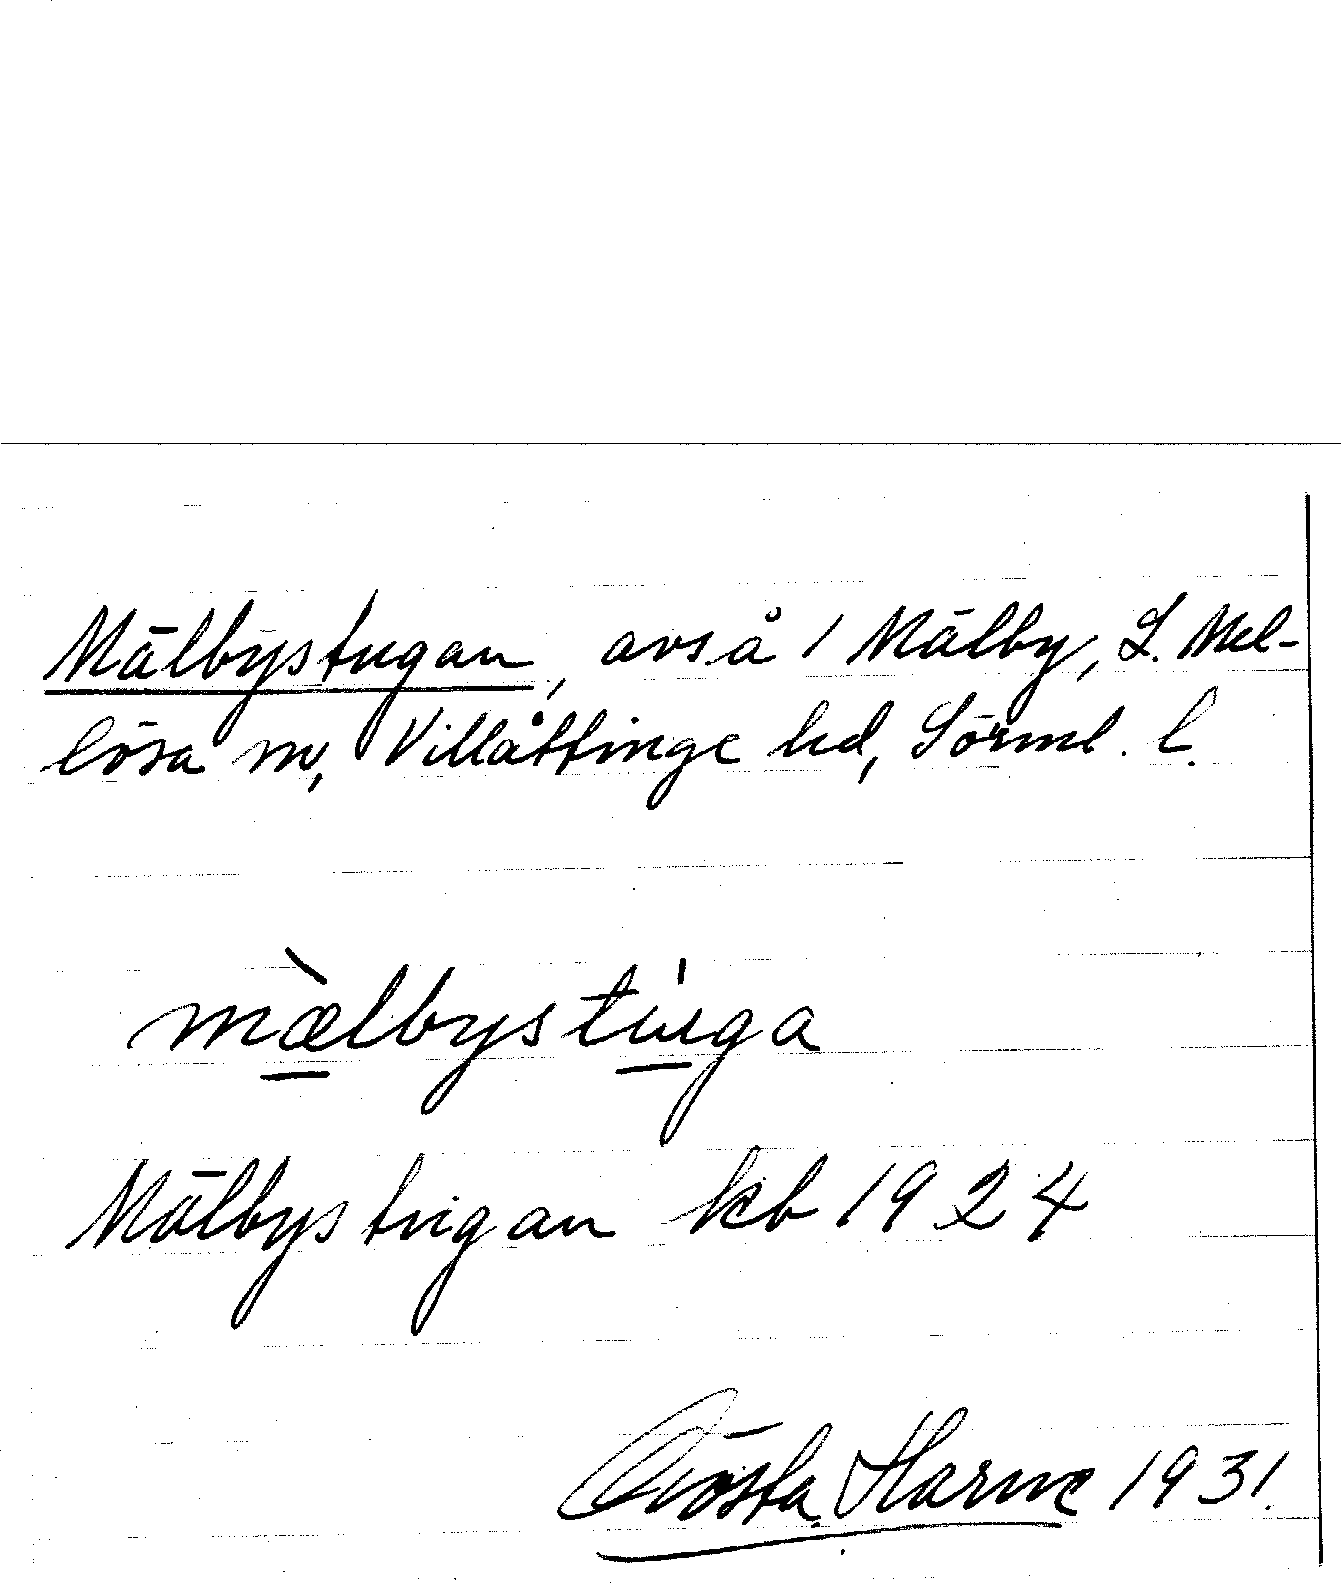 Mälbystugan, avs å 1 Mälby, L. Mel-
lösa sn, Villåttinge hd, Sörml. l.
mæ̀lbystúga
Mälbystugan kb 1924
Gösta Harne 1931.